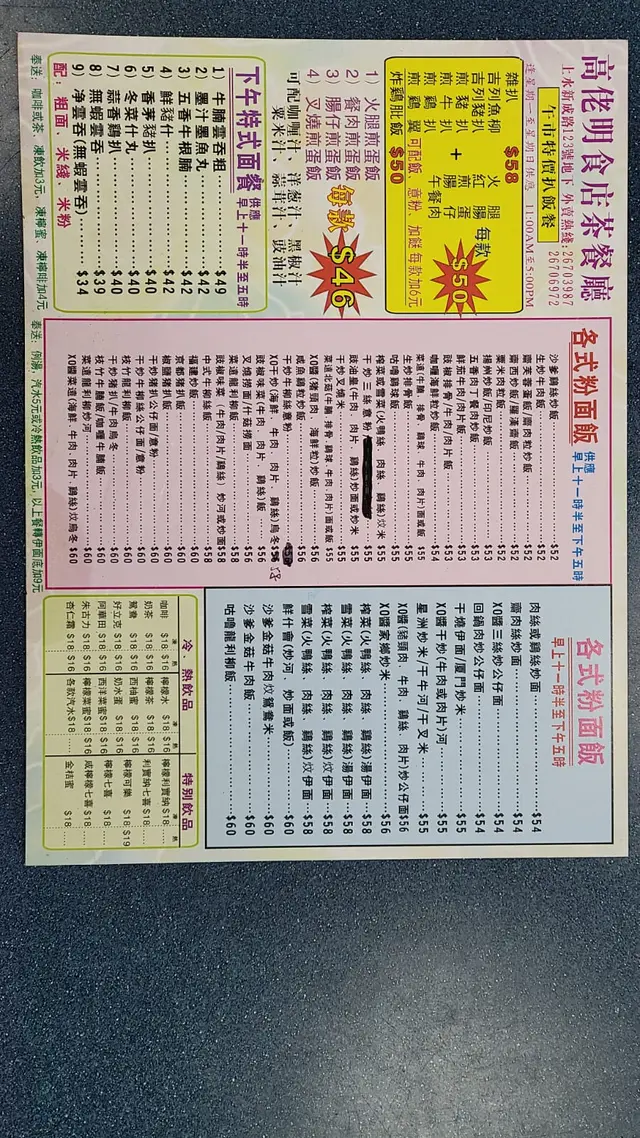 高佬明食店茶餐廳
上水新成路123號地下 外賣熱綫:26703987
26706972
午市特價扒飯餐
逢星期一至星期日供應 11:00AM至5:00PM
雜扒 $58
吉列魚柳
吉列豬扒
煎豬扒
煎牛扒
煎雞扒
煎雞翼
+
火腿
紅腸
煎蛋
腸仔
午餐肉
每款 $50
炸雞肶飯 $50
可配飯、意粉、加餸每款加6元
1) 火腿煎蛋飯
2) 餐肉煎蛋飯
3) 腸仔煎蛋飯
4) 叉燒煎蛋飯
每款 $46
可配咖喱汁、洋葱汁、黑椒汁
粟米汁、蘑茸汁、豉油汁
下午特式面餐 供應 早上十一時半至五時
1) 牛腩雲吞粗 $49
2) 墨汁墨魚丸 $42
3) 五香牛根腩 $42
4) 鮮豬什 $42
5) 香茅豬扒 $40
6) 冬菜什丸 $40
7) 蒜香雞扒 $40
8) 無蝦雲吞 $39
9) 净雲吞(無蝦雲吞) $34
配：粗面 米綫 米粉
奉送：咖啡或茶、凍飲加3元，凍檸蜜、凍檸啡加4元
各式粉面飯 供應 早上十一時半至下午五時
沙爹雞絲炒飯 $52
生炒牛肉飯 $52
齋芙蓉蛋飯/齋肉粒炒飯 $52
齋西炒飯/羅漢齋飯 $52
粟米肉粒飯 $52
揚州炒飯/印尼炒飯 $53
五香肉丁餐肉炒飯 $53
鮮茄牛肉/肉片飯 $53
豉椒排骨/牛肉/肉片飯 $53
咖喱海鮮炒飯 $54
菜遠(牛腩 排骨 雞球 牛肉 肉片)面或飯 $55
生炒排骨飯 $55
咕嚕雞球飯 $55
榨菜或雪菜(火鴨絲 肉絲 雞絲)炆米 $55
干炒三絲意粉 $55
豉油皇(牛肉 肉片 雞絲)炒面或炒米 $55
干炒叉燒米 $55
菜遠北菇(牛腩 排骨 雞球 牛肉 肉片)面或飯 $55
XO醬(豬頸肉 海鮮粒)炒飯 $56
咸魚雞粒炒飯 $55
干炒牛柳絲意粉
XO干炒(海鮮 牛肉 肉片 雞絲)烏冬 58
豉椒味菜(牛肉 肉片 雞絲)飯 $56
叉燒撈面/什菇撈面 $56
菜遠龍利柳飯 $58
豉椒味菜(牛肉/肉片/雞絲) 炒河或炒面 $58
中式牛柳絲飯 $58
福建炒飯 $60
京都豬扒飯 $60
椒鹽豬扒飯 $60
干炒豬扒公仔面/意粉 $60
干炒牛柳絲公仔面/意粉 $60
枝竹龍利柳飯 $60
干炒豬扒/牛肉烏冬 $60
枝竹牛腩飯/咖喱牛腩飯 $60
菜遠龍利柳炒河 $60
XO醬菜遠(海鮮 牛肉 肉片 雞絲)炆烏冬 $60
奉送：例湯，汽水5元或冷熱飲品加3元，以上餐轉伊面底加9元
各式粉面飯 早上十一時半至下午五時
肉絲或雞絲炒面 $54
齋肉絲炒面 $54
XO醬三絲炒公仔面 $54
回鍋肉炒公仔面 $54
干燒伊面/廈門炒米 $55
XO醬干炒(牛肉或肉片)河 $55
星洲炒米/干牛河/干叉米 $55
XO醬(豬頸肉、牛肉、雞絲、肉片)炒公仔面 $56
XO醬家鄉炒米 $56
榨菜(火鴨絲 肉絲 雞絲)湯伊面 $58
雪菜(火鴨絲 肉絲 雞絲)湯伊面 $58
榨菜(火鴨絲 肉絲 雞絲)炆伊面 $58
雪菜(火鴨絲 肉絲 雞絲)炆伊面 $58
鮮什會(炒河，炒面或飯) $60
沙爹金菇牛肉炆鴛鴦米 $60
沙爹金菇牛肉飯 $60
咕嚕龍利柳飯 $60
冷、熱飲品 特別飲品
凍 熱 凍 熱 凍 熱
咖啡 $18 $16 檸檬水 $18 $16 檸檬利賓納 $18
奶茶 $18 $16 檸檬茶 $18 $16 利賓納七喜 $18
鴛鴦 $18 $16 西柚蜜 $18 $16 檸檬可樂 $18 $19
好立克 $18 $16 奶水蛋 $18 $16 檸檬七喜 $18
阿華田 $18 $16 西洋菜蜜 $18 $16 咸檸檬七喜 $18
朱古力 $18 $16 檸檬菜蜜 $18 $16 金桔蜜 $18
杏仁霜 $18 $16 各款汽水 $18